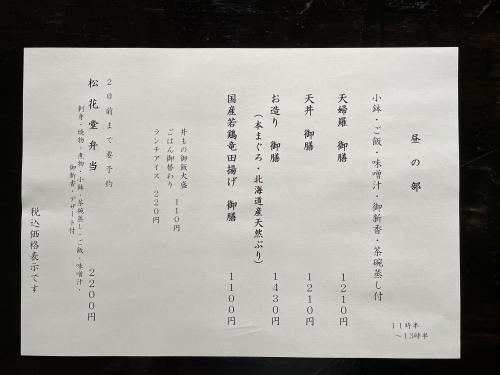 昼の部
11時半
~13時半
小鉢・ご飯・味噌汁・御新香・茶碗蒸し付
天婦羅 御膳 1210円
天丼 御膳 1210円
お造り 御膳 1430円
(本まぐろ・北海道産天然ぶり)
国産若鶏竜田揚げ 御膳 1100円
丼もの御飯大盛
ごはん御替わり 110円
ランチアイス 220円
2日前まで要予約
松花堂弁当 2200円
刺身・焼物・煮物・小鉢・茶碗蒸し・ご飯・味噌汁・
御新香・デザート付
税込価格表示です